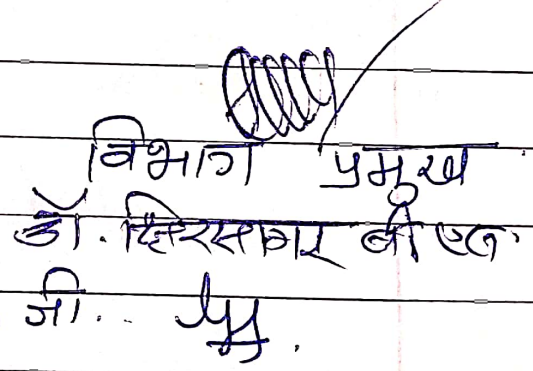 विभाग प्रमुख
डॉ. क्षिरसागर बी एल
जी..